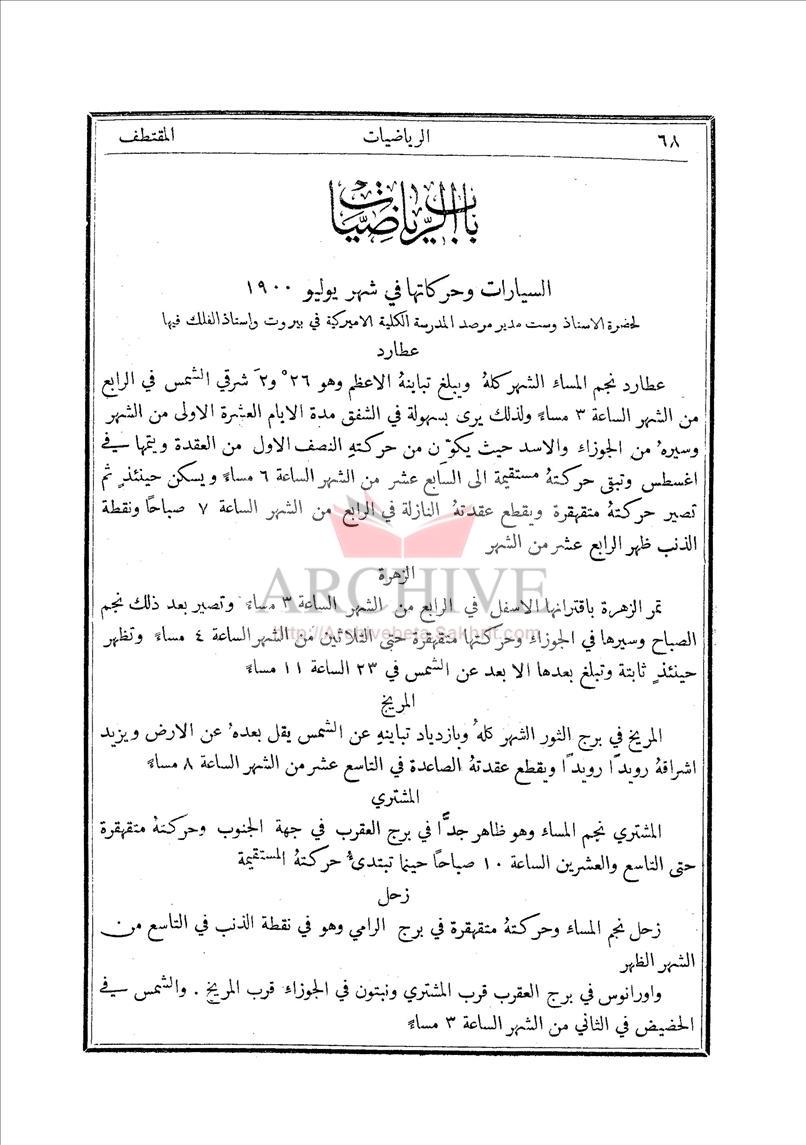 ٦٨ الرياضيات المقتطف
باب الرياضيات
السيارات وحركاتها في شهر يوليو ١٩٠٠
لحضرة الاستاذ وست مدير مرصد المدرسة الكلية الاميركية في بيروت واستاذ الفلك فيها
عطارد
عطارد نجم المساء الشهر كلهُ ويبلغ تباينهُ الاعظم وهو ٢٦° و٢َ شرقي الشمس في الرابع
من الشهر الساعة ٣ مساءً ولذلك يرى بسهولة في الشفق مدة الايام العشرة الاولى من الشهر
وسيرهُ من الجوزاء والاسد حيث يكوّن من حركتهِ النصف الاول من العقدة ويتمها في
اغسطس وتبقى حركتهُ مستقيمة الى السابع عشر من الشهر الساعة ٦ مساءً ويسكن حينئذٍ ثم
تصير حركتهُ متقهقرة ويقطع عقدتهُ النازلة في الرابع من الشهر الساعة ٧ صباحًا ونقطة
الذنب ظهر الرابع عشر من الشهر
الزهرة
ARCHIVE
تمر الزهرة باقترانها الاسفل في الرابع من الشهر الساعة ٣ مساءً وتصير بعد ذلك نجم
http://Archivebeta.Sakhrit.com
الصباح وسيرها في الجوزاء وحركتها متقهقرة حتى الثلاثين من الشهر الساعة ٤ مساءً وتظهر
حينئذٍ ثابتة وتبلغ بعدها الابعد عن الشمس في ٢٣ الساعة ١١ مساءً
المريخ
المريخ في برج الثور الشهر كلهُ وبازدياد تباينهِ عن الشمس يقل بعدهُ عن الارض ويزيد
اشراقهُ رويدًا رويدًا ويقطع عقدتهُ الصاعدة في التاسع عشر من الشهر الساعة ٨ مساءً
المشتري
المشتري نجم المساء وهو ظاهر جدًّا في برج العقرب في جهة الجنوب وحركتهُ متقهقرة
حتى التاسع والعشرين الساعة ١٠ صباحًا حينما تبتدئُ حركتهُ المستقيمة
زحل
زحل نجم المساء وحركتهُ متقهقرة في برج الرامي وهو في نقطة الذنب في التاسع من
الشهر الظهر
واورانوس في برج العقرب قرب المشتري ونبتون في الجوزاء قرب المريخ. والشمس في
الحضيض في الثاني من الشهر الساعة ٣ مساءً